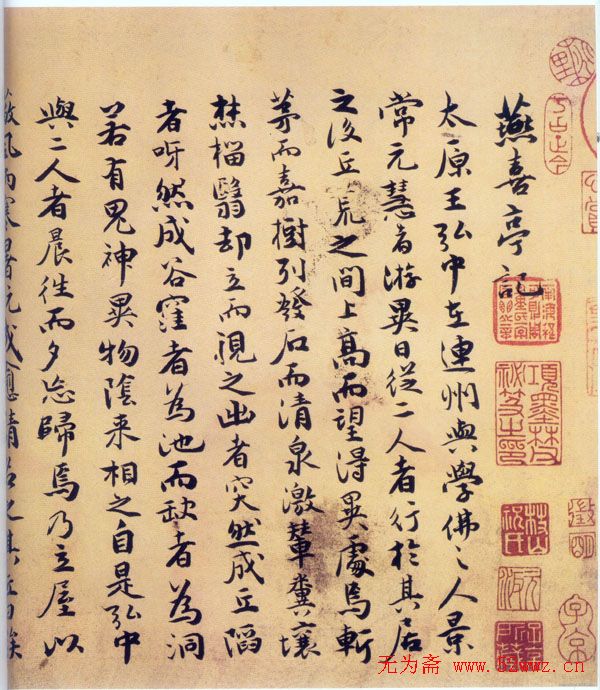 燕喜亭記
太原王弘中在連州與學佛之人景
常元慧者游異日從二人者行於其居
之後丘荒之間上高而望得異處焉斬
茅而嘉樹列發石而清泉激輦糞壤
焚椔翳却立而視之出者突然成丘陷
者呀然成谷窪者為池而缺者為洞
若有鬼神異物陰来相之自是弘中
與二人者晨往而夕忘歸焉乃立屋以
蔽風雨寒暑既成愈請名之其丘曰俟
項墨林祕笈之印
徵明
子京
无为斋 www.52wwz.cn